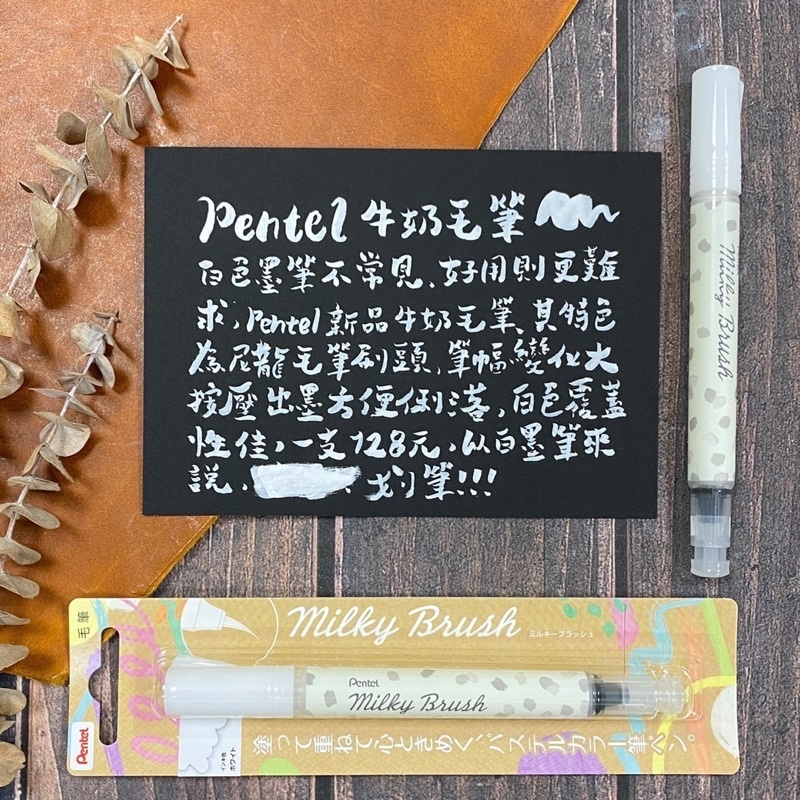 Pentel 牛奶毛筆
白色墨筆不常見、好用則更難
求,Pentel 新品牛奶毛筆、其特色
為尼龍毛筆刷頭,筆幅變化大
按壓出墨方便俐落,白色覆蓋
性佳,一支128元,以白墨筆來
說,
划筆!!!
Milky Brush
毛筆
Milky Brush
ミルキーブラッシュ
Pentel
Milky Brush
Pentel
インキ色
ホワイト
塗って重ねて心ときめく、パステルカラー筆ペン。